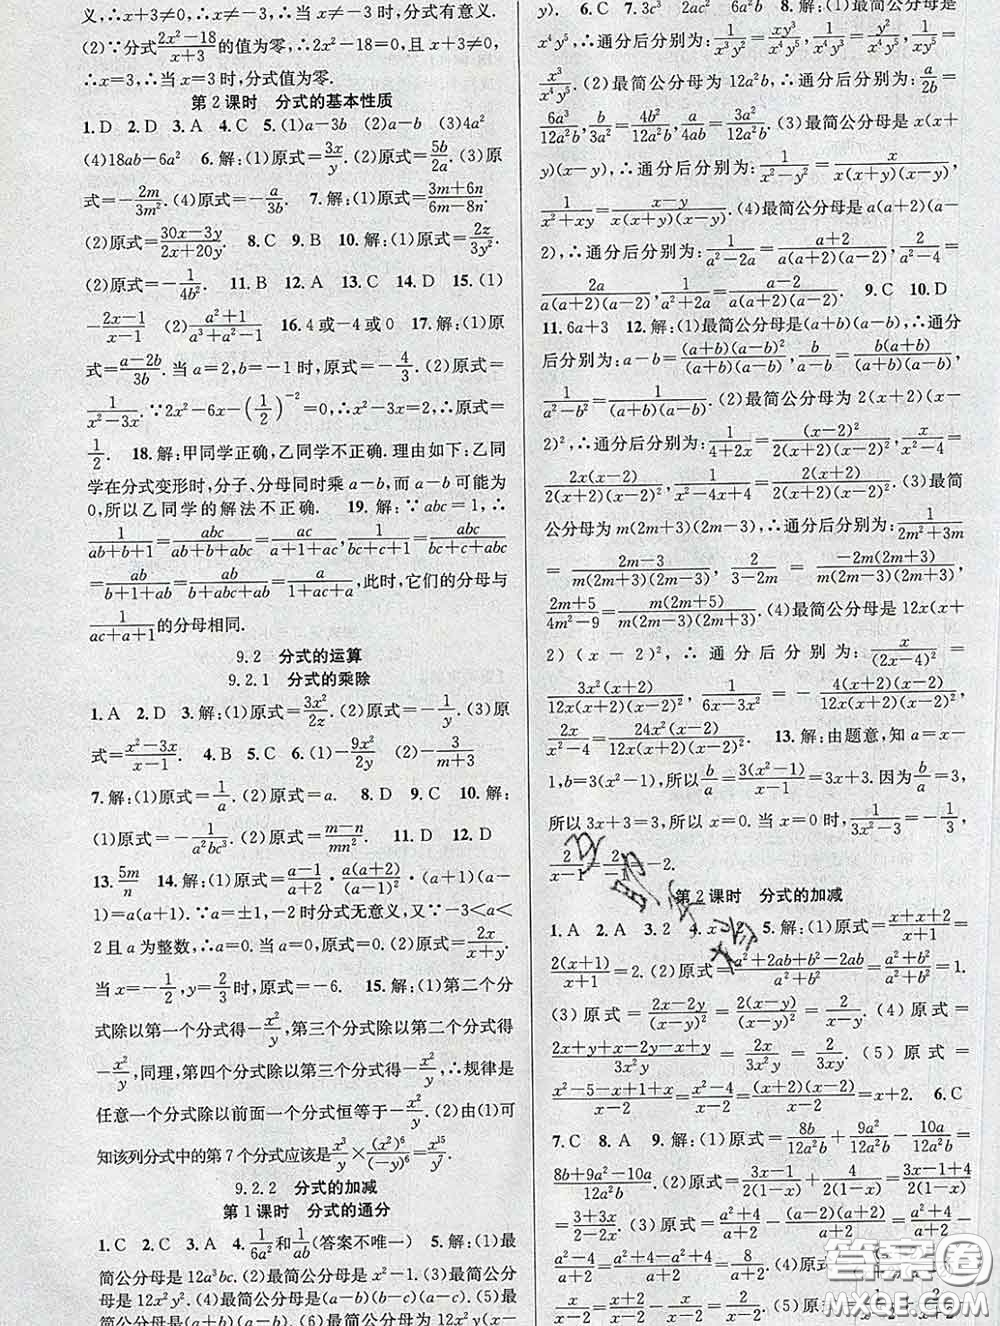 义,∴x+3≠0,∴x≠-3,∴当x≠-3时,分式有意义.
(2)∵分式(2x²-18)/(x+3)的值为零,∴2x²-18=0,且x+3≠0,
∴x=3,∴当x=3时,分式值为零.
第2课时 分式的基本性质
1.D 2.D 3.A 4.C 5.(1)a-3b (2)a (3)4a²
(4)18ab-6a² 6.解:(1)原式=3x/y.(2)原式=5b/2a.(3)原
式=-2m/3m².(4)原式=-a/3b. 7.解:(1)原式=(3m+6n)/(6m-8n).
(2)原式=(30x-3y)/(2x+20y). 8.C 9.B 10.解:(1)原式=2z/3y².
(2)原式=-1/4b². 11.B 12.A 13.C 14.D 15.(1)
-(2x-1)/(x-1) (2)(a²+1)/(a³+a²-1) 16.4或-4或0 17.解:(1)原
式=(a-2b)/3b.当a=2,b=-1时,原式=-4/3.(2)原式=
1/(x²-3x).∵2x²-6x-(1/2)⁻²=0,∴x²-3x=2,∴原式=
1/2. 18.解:甲同学正确,乙同学不正确.理由如下:乙同
学在分式变形时,分子、分母同时乘a-b,而a-b可能为
0,所以乙同学的解法不正确. 19.解:∵abc=1,∴
1/(ab+b+1)=abc/(ab+b+abc)=ac/(a+1+ac),1/(bc+c+1)=abc/(bc+c+abc)
=ab/(b+1+ab)=ab/(b+abc+ab)=a/(1+ac+a),此时,它们的分母与
1/(ac+a+1)的分母相同.
9.2 分式的运算
9.2.1 分式的乘除
1.A 2.D 3.解:(1)原式=3x²/2z.(2)原式=-1/y.(3)原
式=(x²-3x)/(x-1). 4.B 5.C 6.(1)-9x²/2y (2)-3/(m+3)
7.解:(1)原式=1/a.(2)原式=a. 8.D 9.C 10.解:
(1)原式=-1/(a²bc³).(2)原式=(m-n)/mn². 11.D 12.D
13.5m/n 14.解:原式=(a-1)/(a+2)·a(a+2)/(a-1)·(a+1)(a-1)
=a(a+1).∵a=±1,-2时分式无意义,又∵-3<a<
2且a为整数,∴a=0.当a=0时,原式=0.(2)原式=2x/(x+y).
当x=-1/2,y=2/3时,原式=-6. 15.解:(1)第二个分
式除以第一个分式得-x²/y,第三个分式除以第二个分式得
-x²/y,同理,第四个分式除以第三个分式得-x²/y,∴规律是
任意一个分式除以前面一个分式恒等于-x²/y.(2)由(1)可
知该列分式中的第7个分式应该是x³/y×(x²)⁶/(-y)⁶=x¹⁵/y⁷.
9.2.2 分式的加减
第1课时 分式的通分
1.C 2.C 3.A 4.1/6a²和1/ab(答案不唯一) 5.解:(1)最
简公分母是12a³bc.(2)最简公分母是x²-1.(3)最简公分
母是12x²y².(4)最简公分母是(a+b)(a-b).(5)最简公
y). 6.C 7.3c² 2ac² 6a²b 8.解:(1)最简公分母是
x⁴y⁵,∴通分后分别为:1/x³y²=xy³/x⁴y⁵,1/xy⁵=
x³/x⁴y⁵.(2)最简公分母是12a²b,∴通分后分别为:a/2b=
6a³/12a²b,b/3a²=4b²/12a²b,a/4ab=3a²/12a²b.(3)最简公分母是x(x+
y)(x-y),∴通分后分别为:1/(x²-y²)=x/(x(x+y)(x-y)),
1/(x²+xy)=(x-y)/(x(x+y)(x-y)).(4)最简公分母是a(a+2)(a-
2),∴通分后分别为:1/(a²-2a)=(a+2)/(a(a+2)(a-2)),2/(a²-4)=
2a/(a(a+2)(a-2)),1/(a²+2a)=(a-2)/(a(a+2)(a-2)). 9.C 10.D
11.6a+3 12.解:(1)最简公分母是(a+b)(a-b),∴通分
后分别为:a-b=(a+b)(a-b)²/((a+b)(a-b)),b/(a-b)=b(a+b)/((a+b)(a-b)),
1/(a²-b²)=1/((a+b)(a-b)).(2)最简公分母为2(x+2)(x-
2)²,∴通分后分别为:1/(4+2x)=(x-2)²/(2(x+2)(x-2)²),
x/(x²-4x+4)=2x(x+2)/(2(x+2)(x-2)²).(3)最简
公分母为m(2m+3)(2m-3),∴通分后分别为:1/(2m²+3m)
=(2m-3)/(m(2m+3)(2m-3)),2/(3-2m)=-2m(2m+3)/(m(2m+3)(2m-3)),
(2m+5)/(4m²-9)=m(2m+5)/(m(2m+3)(2m-3)).(4)最简公分母是12x(x+
2)(x-2)²,∴通分后分别为:x/(2x-4)²=
3x²(x+2)/(12x(x+2)(x-2)²),1/(6x-3x²)=
2x/(x²-4)=24x²(x-2)/(12x(x+2)(x-2)²). 13.解:由题意,知a=x-
1,b=3(x²-1),所以b/a=3(x²-1)/(x-1)=3x+3.因为b/a=3,
所以3x+3=3,所以x=0.当x=0时,1/(3x²-3)=-1/3,
2/(x-1)=2/-1=-2.
第2课时 分式的加减
1.A 2.A 3.2 4.x 5.解:(1)原式=(x+x+2)/(x+1)=
2(x+1)/(x+1)=2.(2)原式=(a²+2ab+b²-2ab)/(a²+b²)=(a²+b²)/(a²+b²)=1.
(3)原式=(2x-2y)/(x-y)²=2(x-y)/(x-y)²=2/(x-y).(4)原式=
(2x+y+x-2y-x+y)/3x²y=2x/3x²y=2/3xy.(5)原式=
(x²-5-x+1+x)/(x-2)=(x²-4)/(x-2)=(x+2)(x-2)/(x-2)=x+2. 6.C
7.C 8.A 9.解:(1)原式=8b/12a²b+9a²/12a²b-10a/12a²b=
(8b+9a²-10a)/12a²b.(2)原式=(3x-1)/(2(1-x))+4/(2(1-x))=(3x-1+4)/(2(1-x))=
(3+3x)/(2-2x).(3)原式=(a²+4)/(a²-4)-(a-2)(a+2)/(a²-4)=
答案圈
MXQE.COM